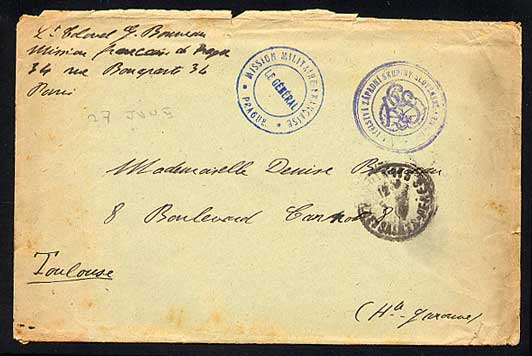 Lt Colonel J. Bonneau
Mission française de Prague
34 rue Bonaparte 34
Paris
27 JUNE
MISSION MILITAIRE FRANÇAISE
LE GÉNÉRAL
PRAGUE
ZÁPADNÍ SKUPINY
Mademoiselle Denise
8 Boulevard Carnot 8
Toulouse
(Hte Garonne)